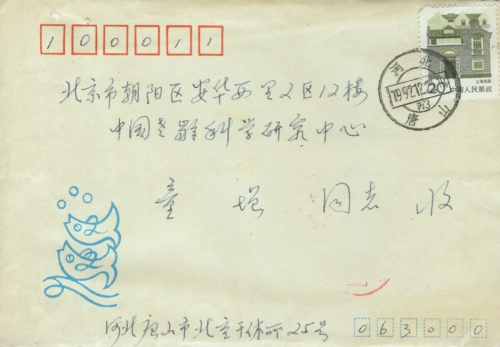 100011
北京市朝阳区安华西里又区12楼
中国老龄科学研究中心
童增 同志 收
河北唐山市北京干休所25号
063000
河北
1992.12.
唐山
20
上海民居
中国人民邮政